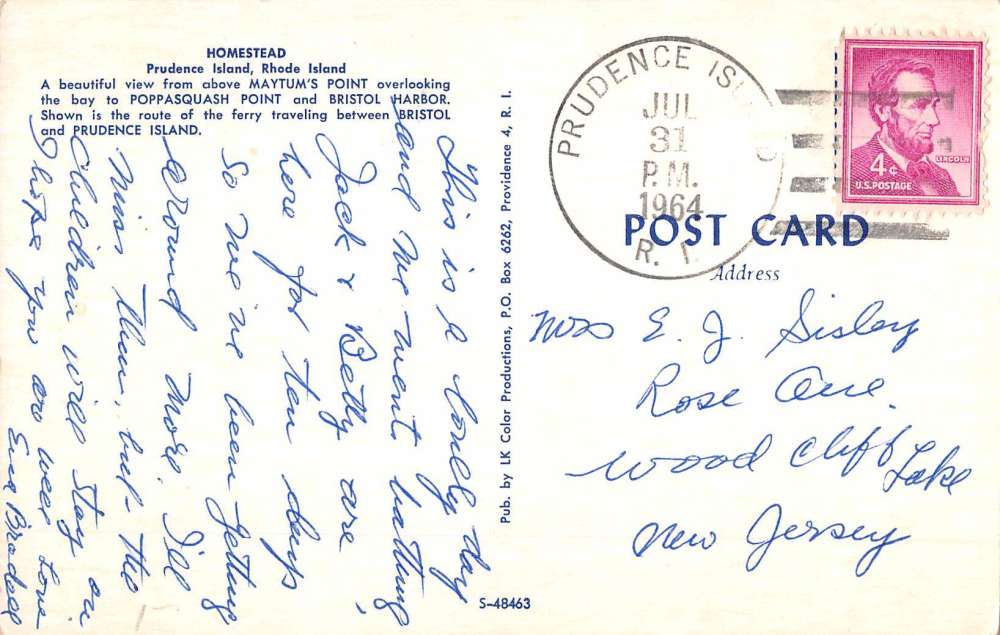 HOMESTEAD
Prudence Island, Rhode Island
A beautiful view from above MAYTUM'S POINT overlooking
the bay to POPPASQUASH POINT and BRISTOL HARBOR.
Shown is the route of the ferry traveling between BRISTOL
and PRUDENCE ISLAND.
This is a lovely day
and we went bathing
Jack & Betty are
here for ten days
So we've been getting
around more. I'll
miss them, but the
Children will stay on
I hope you are well Love
Eva
Pub. by LK Color Productions, P.O. Box 6262, Providence 4, R. I.
S-48463
PRUDENCE ISLAND
JUL
31
P.M.
1964
R. I.
LINCOLN
4¢
U.S. POSTAGE
POST CARD
Address
Miss E. J. Sisley
Rose Ave.
Wood Cliff Lake
New Jersey